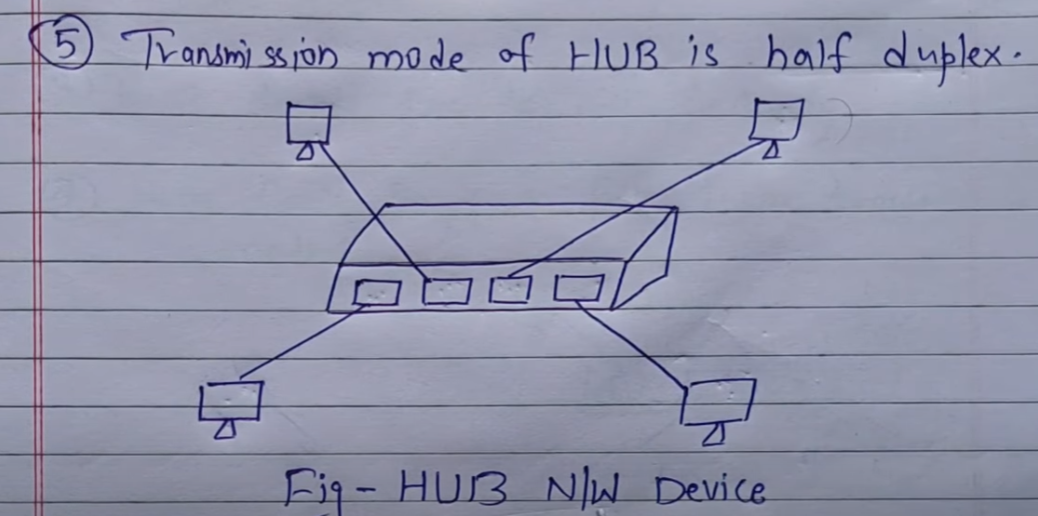 ⑤ Transmission mode of HUB is half duplex.
Fig - HUB N/W Device